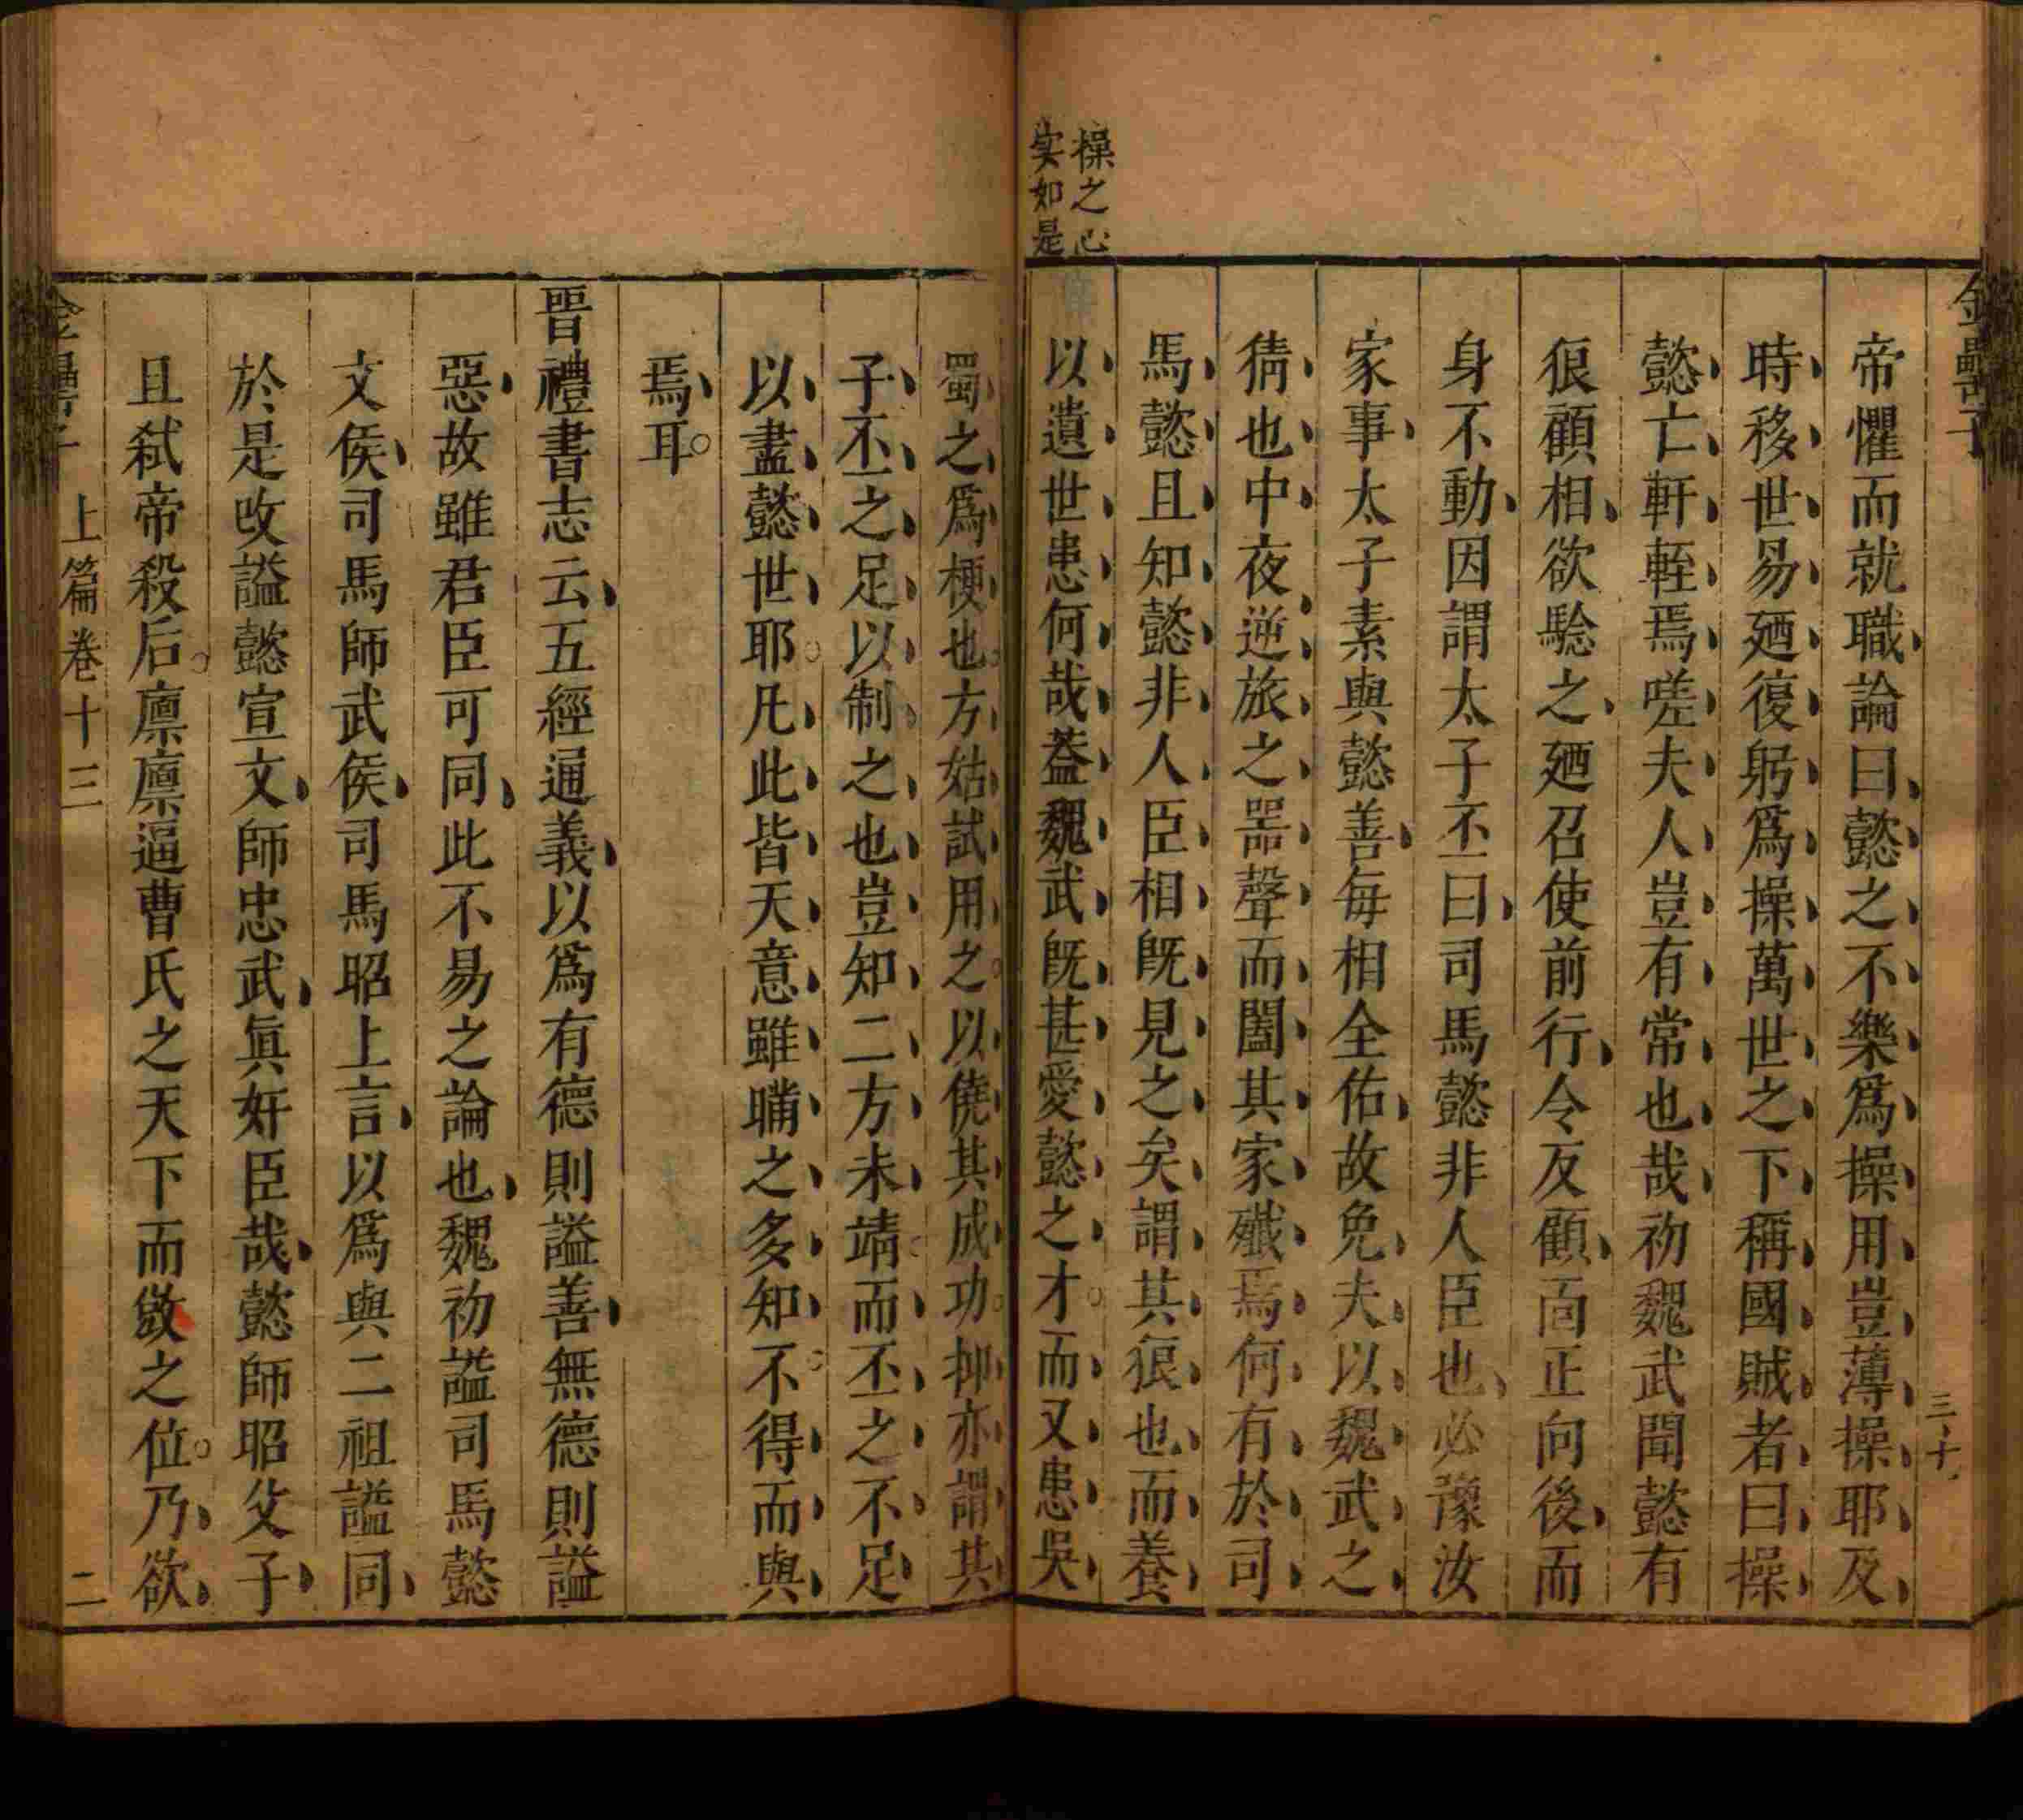 操之心
実如是
帝懼而就職論曰懿之不樂爲操用豈薄操耶及
時移世易廼復躬爲操萬世之下稱國賊者曰操
懿亡軒輊焉嗟夫人豈有常也哉初魏武聞懿有
狼顧相欲騐之廼召使前行令反顧面正向後而
身不動因謂太子丕曰司馬懿非人臣也必豫汝
家事太子素與懿善每相全佑故免夫以魏武之
猜也中夜逆旅之噐聲而闔其家殱焉何有於司
馬懿且知懿非人臣相旣見之矣謂其狼也而養
以遺世患何哉葢魏武旣甚愛懿之才而又患吳
蜀之爲梗也方姑試用之以僥其成功抑亦謂其
子丕之足以制之也豈知二方未靖而丕之不足
以盡懿世耶凡此皆天意雖瞞之多知不得而與
焉耳
晋禮書志云五經通義以爲有德則謚善無德則謚
惡故雖君臣可同此不易之論也魏初謚司馬懿
文侯司馬師武侯司馬昭上言以爲與二祖謚同
於是改謚懿宣文師忠武眞奸臣哉懿師昭父子
且弑帝殺后廪廪逼曹氏之天下而斂之位乃欲
上篇卷十三
二